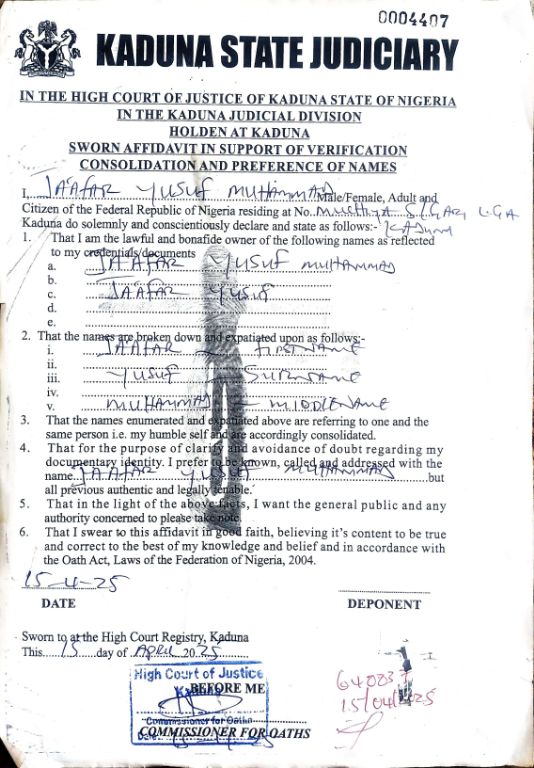 0004407
KADUNA STATE JUDICIARY
IN THE HIGH COURT OF JUSTICE OF KADUNA STATE OF NIGERIA
IN THE KADUNA JUDICIAL DIVISION
HOLDEN AT KADUNA
SWORN AFFIDAVIT IN SUPPORT OF VERIFICATION
CONSOLIDATION AND PREFERENCE OF NAMES
I, JA'AFAR YUSUF MUHAMMAD Male/Female, Adult and
Citizen of the Federal Republic of Nigeria residing at No. S/GARI L.G.A
Kaduna do solemnly and conscientiously declare and state as follows:- KADUNA
1. That I am the lawful and bonafide owner of the following names as reflected
to my credentials/documents
a. JA'AFAR YUSUF MUHAMMAD
b.
c. JA'AFAR YUSIF
d.
e.
2. That the names are broken down and expatiated upon as follows:-
i. JA'AFAR - FIRSTNAME
ii.
iii. YUSUF - SURNAME
iv.
v. MUHAMMAD - MIDDLENAME
3. That the names enumerated and expatiated above are referring to one and the
same person i.e. my humble self and are accordingly consolidated.
4. That for the purpose of clarity and avoidance of doubt regarding my
documentary identity. I prefer to be known, called and addressed with the
name JA'AFAR YUSUF MUHAMMAD but
all previous authentic and legally tenable.
5. That in the light of the above facts, I want the general public and any
authority concerned to please take note.
6. That I swear to this affidavit in good faith, believing it's content to be true
and correct to the best of my knowledge and belief and in accordance with
the Oath Act, Laws of the Federation of Nigeria, 2004.
15-4-25
DATE DEPONENT
Sworn to at the High Court Registry, Kaduna
This 15 day of April 2025
High Court of Justice
Kaduna
BEFORE ME
Commissioner for Oaths
Date
COMMISSIONER FOR OATHS
15/04/25